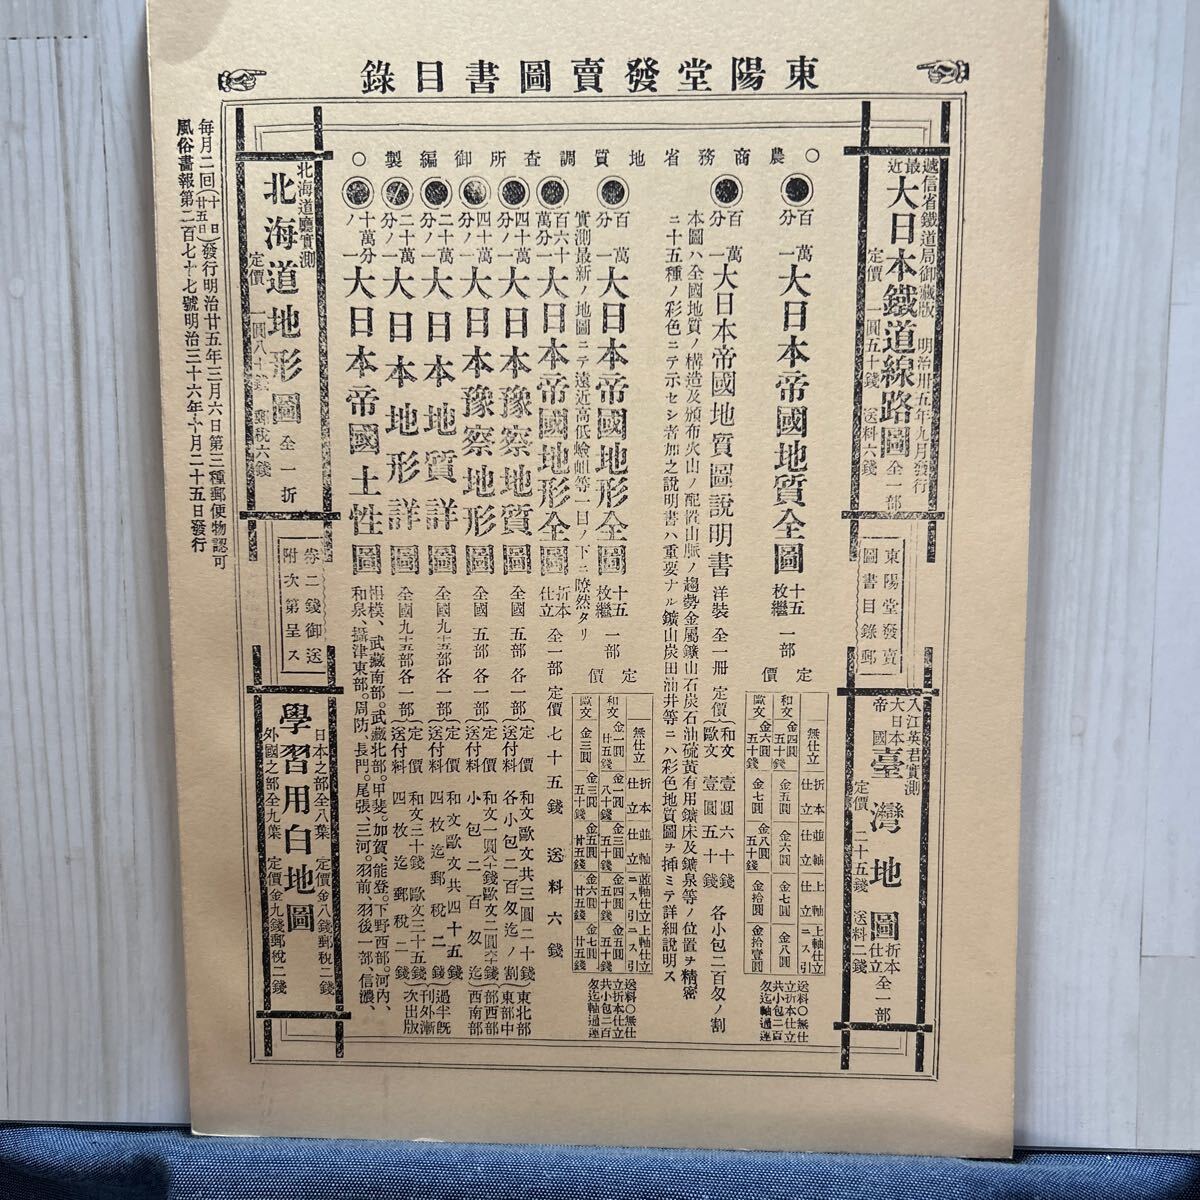 東陽堂發賣圖書目錄
遞信省鐵道局御藏版 明治卅五年九月發行
最近
大日本鐵道線路圖 全一部
定價 一圓五十錢 送料六錢
東陽堂發賣
圖書目錄郵
券二錢御送
附次第呈ス
入江英君實測
大日本帝國
臺灣地圖 折本仕立 全一部
定價 二十五錢 送料二錢
○農商務省地質調査所御編製○
百萬分一 大日本帝國地質全圖 十五枚繼 一部
定價
無仕立 折本仕立 並軸仕立 上軸仕立 上軸仕立ニス引
和文 金四圓五十錢 金五圓 金六圓 金七圓 金八圓
歐文 金六圓五十錢 金七圓 金八圓五十錢 金拾圓 金拾壹圓
送料○無仕立折本仕立共小包二百匁迄軸通運
百萬分一 大日本帝國地質圖說明書 洋裝 全一冊 定價 和文 壹圓六十錢 歐文 壹圓五十錢 各小包二百匁ノ割
本圖ハ全國地質ノ構造及頒布火山ノ配置山脈ノ趨勢金屬鑛山石炭石油硫黃有用鑛床及鑛泉等ノ位置ヲ精密
ニ十五種ノ彩色ニテ示セシ者加之說明書ハ重要ナル鑛山炭田油井等ニハ彩色地質圖ヲ揷ミテ詳細說明ス
百萬分一 大日本帝國地形全圖 十五枚繼 一部
定價
無仕立 折本仕立 並軸仕立 並軸仕立ニス引 上軸仕立ニス引
和文 金一圓廿五錢 金一圓八十錢 金三圓五十錢 金四圓五十錢 金五圓五十錢
歐文 金三圓 金三圓五十錢 金五圓廿五錢 金六圓廿五錢 金七圓廿五錢
送料○無仕立折本仕立共小包二百匁迄軸通運
實測最新ノ地圖ニテ遠近高低嶮岨等一目ノ下ニ瞭然タリ
百六十萬分一 大日本帝國地形全圖 折本仕立 全一部 定價七十五錢 送料六錢
四十萬分ノ一 大日本豫察地質圖 全國五部各一部 定價 和文歐文共三圓二十錢 東北部
送付料 各小包二百匁迄ノ割 東部中
四十萬分ノ一 大日本豫察地形圖 全國五部各一部 定價 和文一圓六十錢歐文二圓六十錢 部西部
送付料 小包二百匁迄 西南部
二十萬分ノ一 大日本地質詳圖 全國九十五部各一部 定價 和文歐文共四十五錢 過半旣
送付料 四枚迄郵稅二錢 刊外漸
二十萬分ノ一 大日本地形詳圖 全國九十五部各一部 定價 和文三十錢 歐文三十五錢 次出版
送付料 四枚迄郵稅二錢
十萬分ノ一 大日本帝國土性圖 相模、武藏南部。武藏北部。甲斐。加賀、能登。下野西部。河內、
和泉、攝津東部。周防、長門。尾張、三河。羽前、羽後一部、信濃、
北海道廳實測
北海道地形圖 全一折
定價 一圓八十錢 郵稅六錢
學習用白地圖
日本之部全八葉 定價金八錢郵稅二錢
外國之部全九葉 定價金九錢郵稅二錢
每月二回(十日廿五日)發行明治廿五年三月六日第三種郵便物認可
風俗畫報第二百七十七號明治三十六年十月二十五日發行